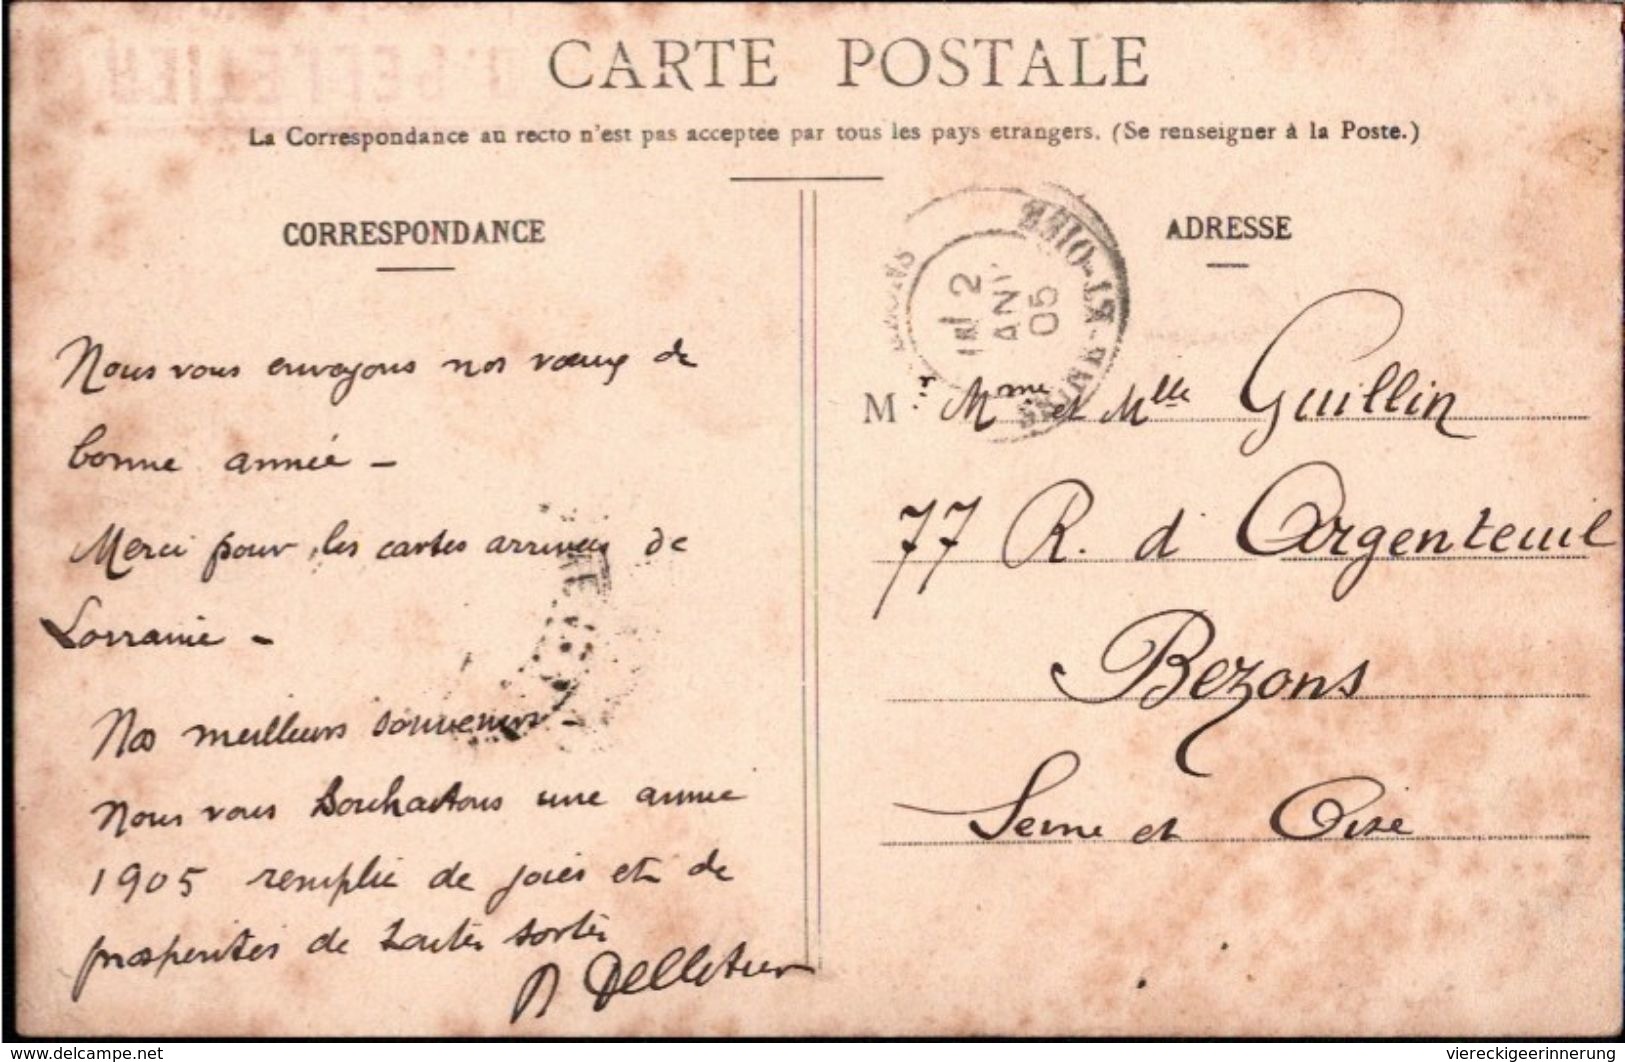 CARTE POSTALE
La Correspondance au recto n'est pas acceptee par tous les pays etrangers. (Se renseigner à la Poste.)
CORRESPONDANCE
Nous vous envoyons nos vœux de
bonne année —
Merci pour les cartes arrivées de
Lorraine —
Nos meilleurs souvenirs —
Nous vous souhaitons une année
1905 remplie de joies et de
prosperités de toutes sortes
Pelletier
ADRESSE
2
05
SEINE-ET-OISE
M Mme et Mlle Guillin
77 R. d Argenteuil
Bezons
Seine et Oise
www.delcampe.net
viereckigeerinnerung